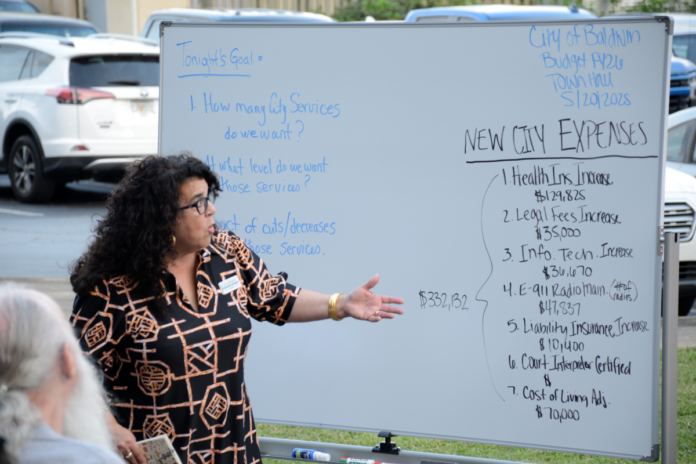 Tonight's Goal =
1. How many City Services
do we want?
At what level do we want
those services?
of cuts/decreases
those Services.
City of Baldwin
Budget FY26
Town Hall
5/20/2025
NEW CITY EXPENSES
1 Health Ins Increase
$129,825
2. Legal Fees Increase
$35,000
3. Info. Tech. Increase
$36,670
4. E-911 Radio Main. (# of radios)
$47,837
5. Liability Insurance Increase
$10,400
6. Court Interpreter Certified
$
7. Cost of Living Adj.
$70,000
$332,132